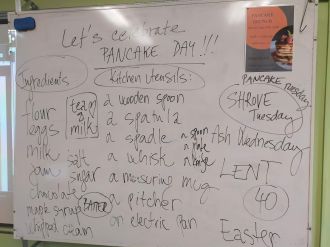 Let's celebrate
PANCAKE DAY!!!
PANCAKE
BRUNCH
Ingredients
flour
eggs
milk
jam
chocolate
maple syrup
whipped cream
team
milk
salt
sugar
BATTER
Kitchen Utensills:
a wooden spoon
a spatula
a spadle
a whisk
a measuring mug
a pitcher
an electric pan
a spoon
a plate
a knife
PANCAKE Tuesday
SHROVE
Tuesday
Ash Wednesday
LENT
40
Easter